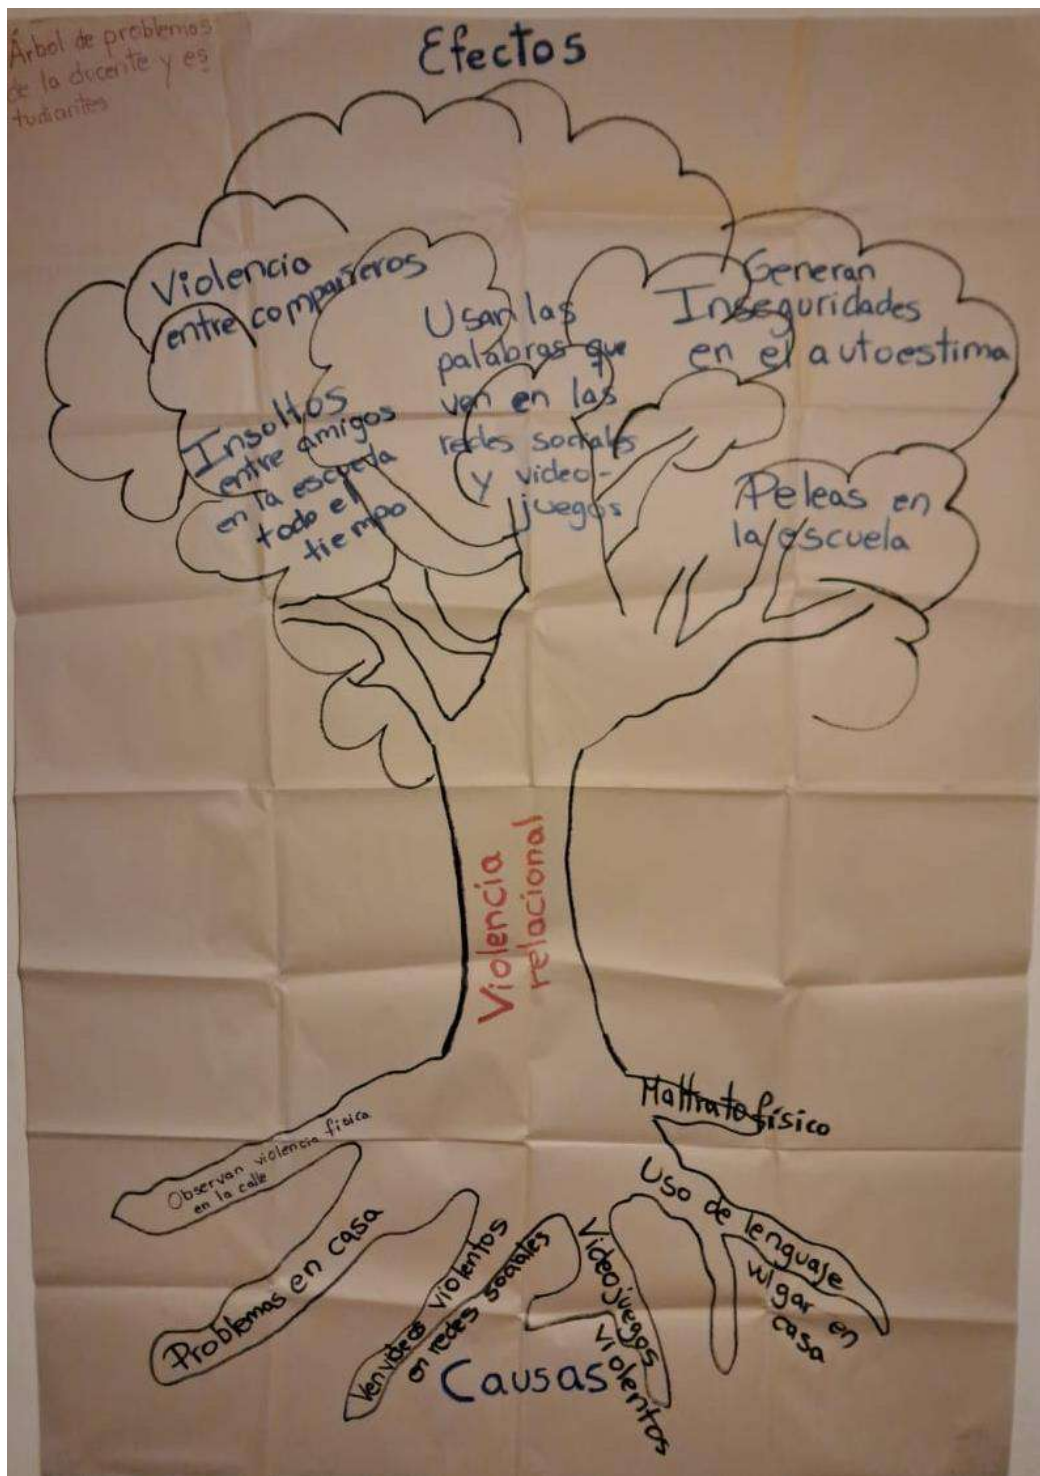 Árbol de problemas
de la docente y es
tudiantes
Efectos
Violencia
entre compañeros
Insultos
entre amigos
en la escuela
todo el
tiempo
Usan las
palabras que
ven en las
redes sociales
y video-
juegos
Generan
Inseguridades
en el autoestima
Peleas en
la escuela
Violencia
relacional
Observan violencia física
en la calle
Problemas en casa
Ven videos violentos
en redes sociales
Videojuegos
violentos
Maltrato físico
Uso de lenguaje
vulgar en
casa
Causas